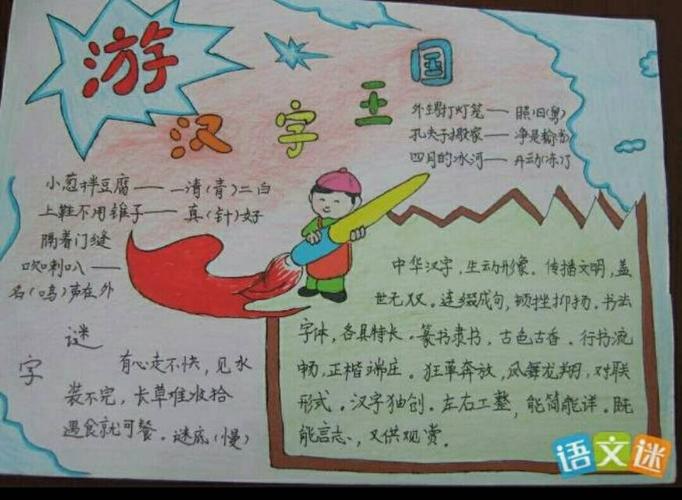 游
汉字王国
外甥打灯笼——照旧(舅)
孔夫子搬家——净是输(书)
四月的冰河——开动(冻)了
小葱拌豆腐——一清(青)二白
上鞋不用锥子——真(针)好
隔着门缝
吹喇叭——
名(鸣)声在外
字谜
有心走不快，见水
装不完，长草难收拾
遇食就可餐。谜底(慢)
中华汉字，生动形象。传播文明，盖
世无双。连缀成句，顿挫抑扬。书法
字体，各具特长。篆书隶书，古色古香。行书流
畅，正楷端庄。狂草奔放，凤舞龙翔，对联
形式。汉字独创。左右工整，能简能详。既
能言志，又供观赏。
语文迷